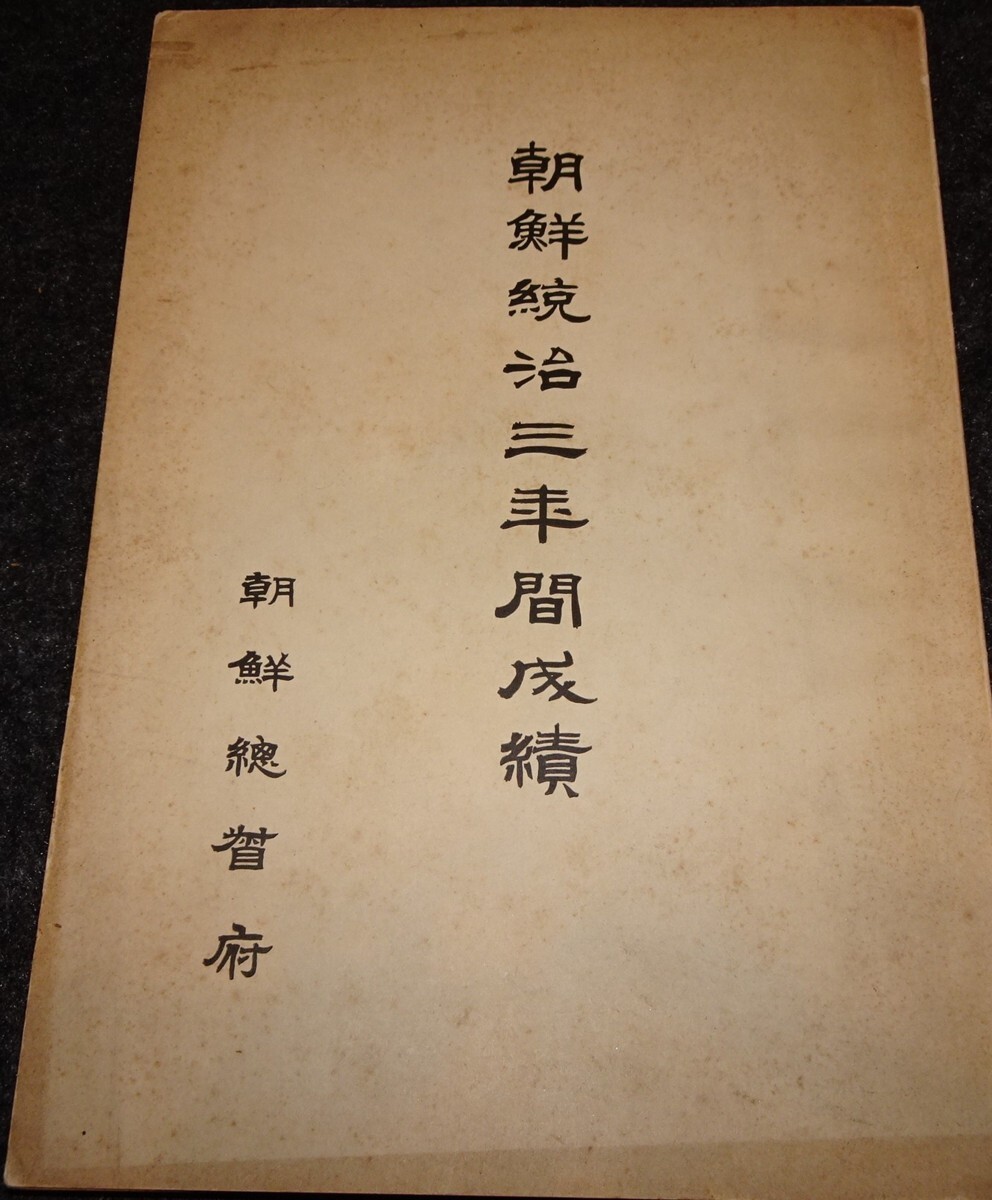 朝鮮統治三年間成績
朝鮮總督府